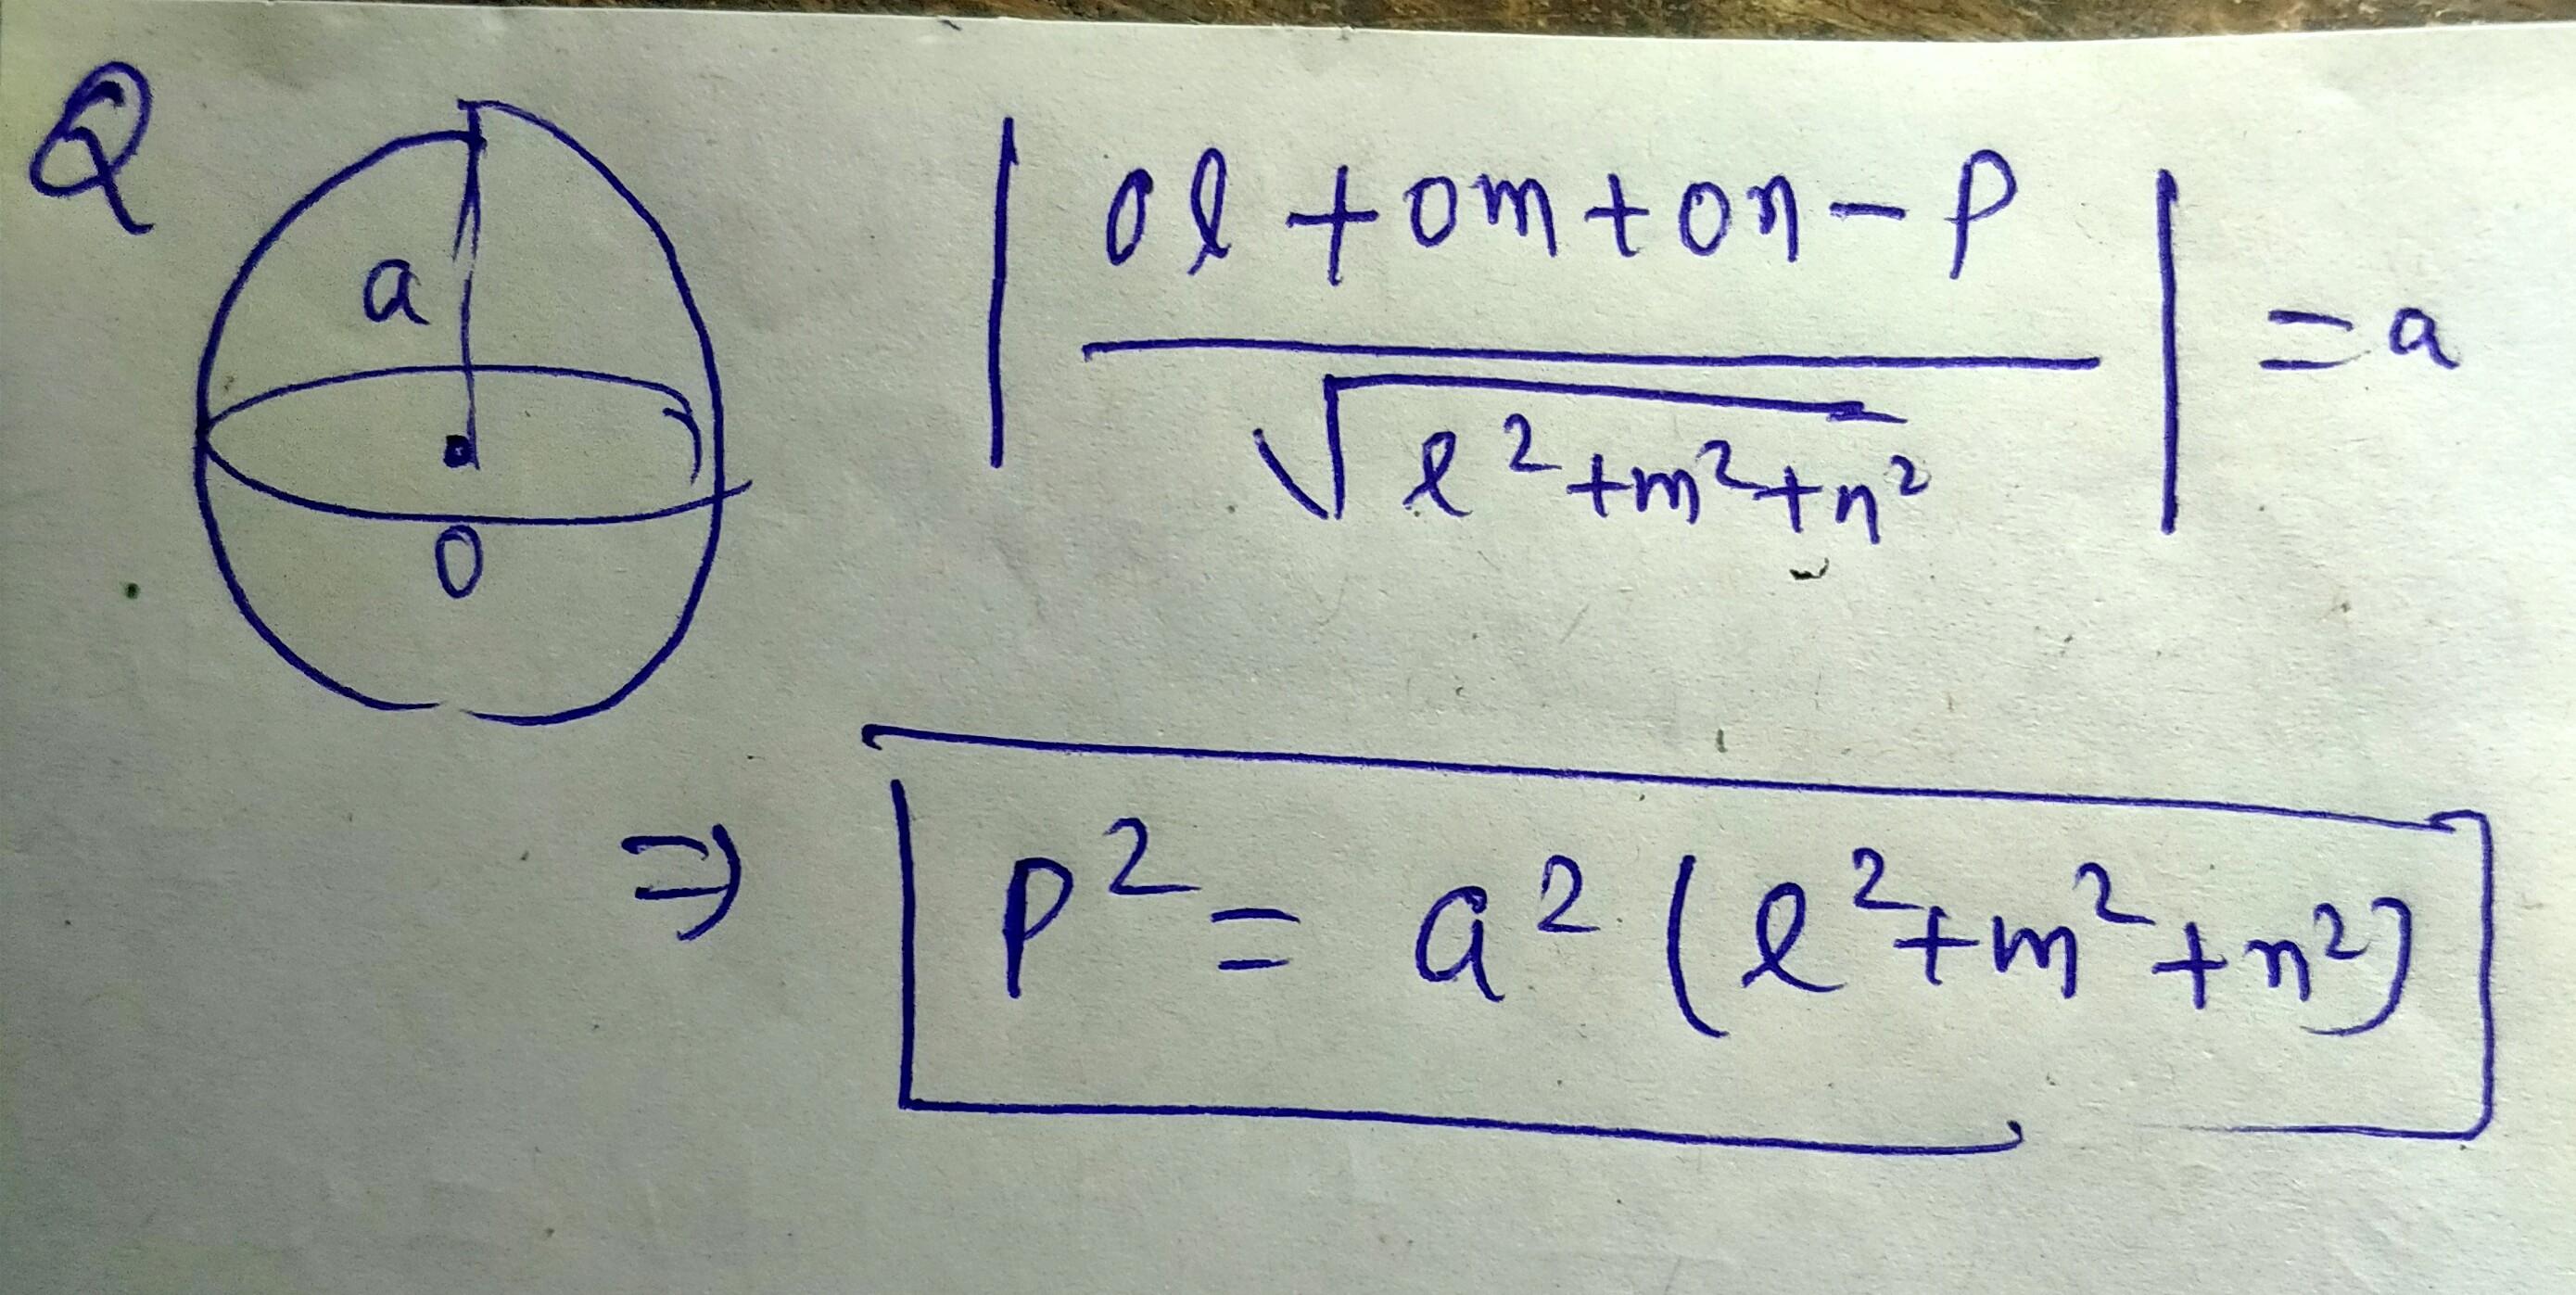 Q
a
O
| 0l + 0m + 0n - P | = a
√l² + m² + n²
⇒ P² = a² (l² + m² + n²)